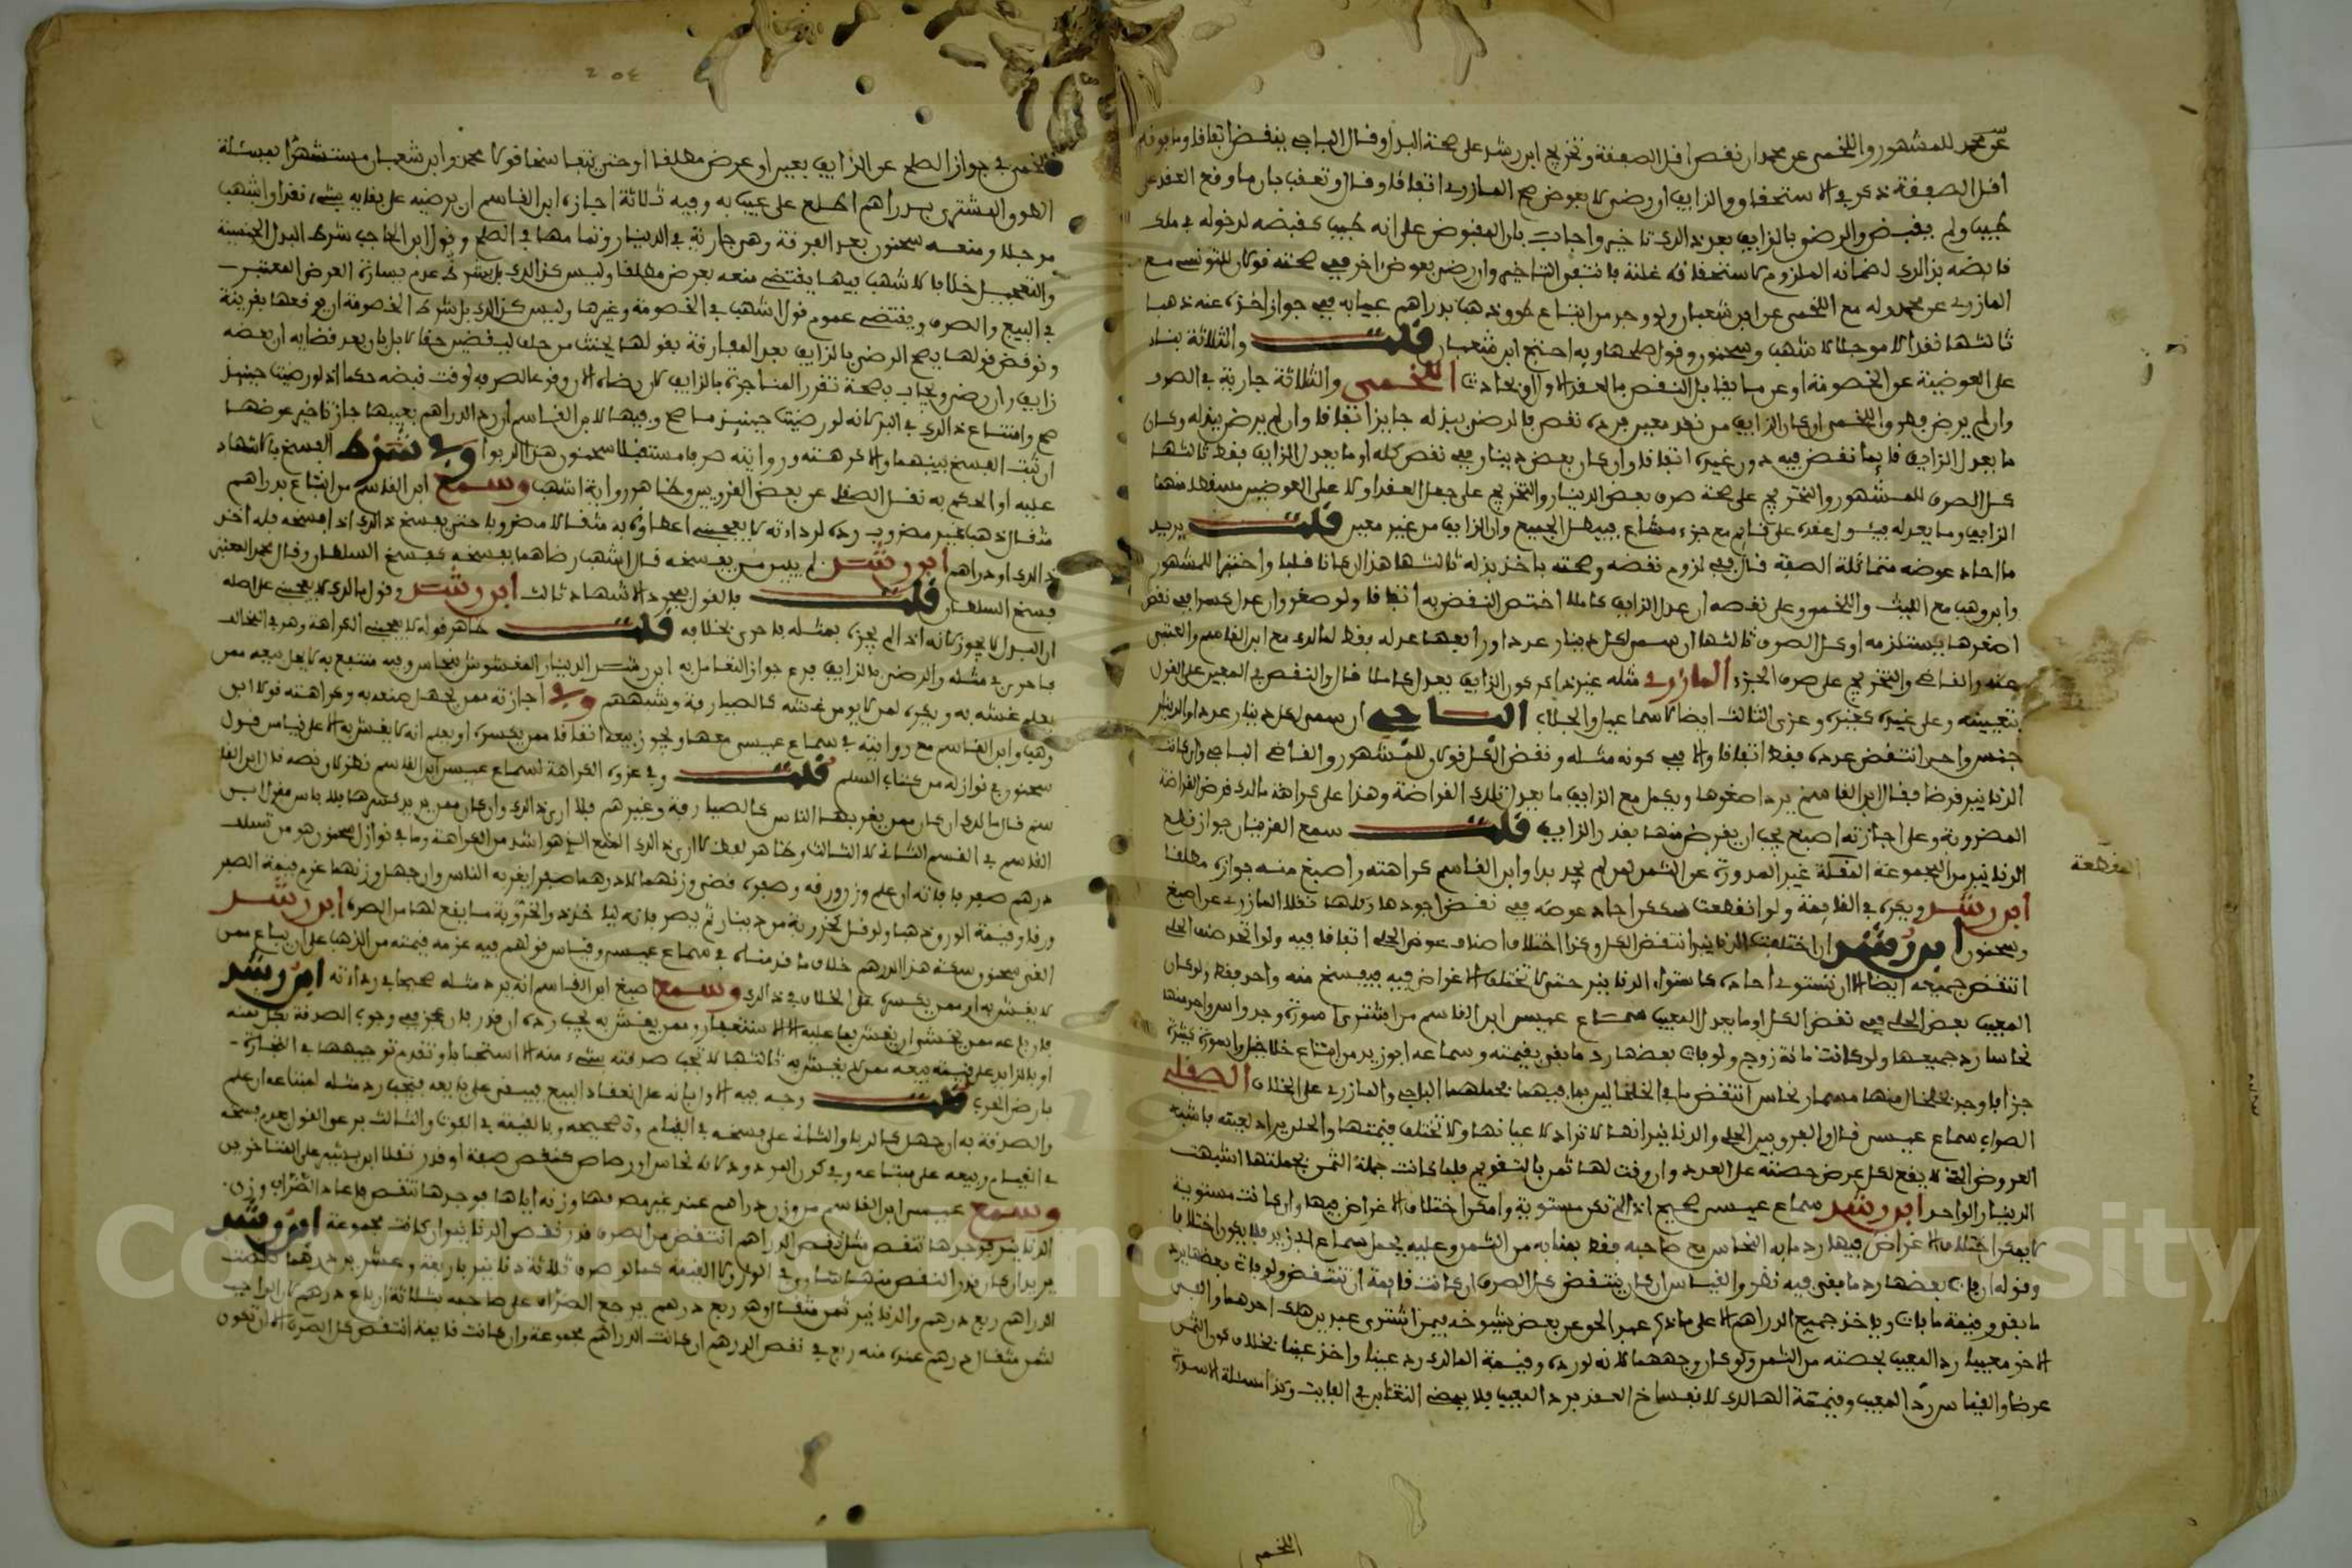 عن محمد للمشهور واللخمي عن محمد ان نقص اقل الصفقة وتخريج ابن رشد على صحة البدل وقال الباجي ينقض اتفاقا وما
اقل الصفقة ذكر في الاستحقاق والزايف ان رضي لا بعوض صح المازري اتفاقا وقال وتعقب بان ما وقع العقد عن
طيب ولم يقبض والرضى بالزايف بعد ذلك تاخير واجاب بان المقبوض على انه طيب كقبضه لدخوله في ملك
قابضه بذلك لضمانه الملزوم لاستحقاقه غلته فانتفى التاخير وان رضي بعوض اخر ففي صحته قولان للتونسي مع
المازري عن محمد وله مع اللخمي عن ابن شعبان ولو وجد من ابتاع طوق ذهب بدراهم عيبا به ففي جواز اخذه عنه ذهبا
ثالثها نقدا لا موجلا لاشهب وسحنون وقول صلحها وبه احتج ابن شعبان قلت والثلاثة بناء
على العوضية عن الخصومة او عن ما يقابل النقص بالعقد الاول او بحادث اللخمي والثلاثة جارية في الصرف
وان لم يرض فهو واللخمي ان كان الزايف من نقد معين فرده نقص فالرضى ببدله جايز اتفاقا وان لم يرض ببدله وكان
ما يعدل الزايف قايما نقض فيه دون غيره اتفاقا وان كان بعض دينار ففي نقض كله او ما يعدل الزايف فقط ثالثها
كل الصرف للمشهور والتخريج على صحة صرف بعض الدينار والتخريج على جعل العقد اولا على العوضين مسقطا منهما
الزايف وما يعدله فيئول عقده على قايم مع جزء مشاع فيهل الجميع وان الزايف من غير معين قلت يريد
ما احاد عوضه متماثلة الصفة قال ففي لزوم نقضه وصحته باخذ بدله ثالثها هذا ان كانا فلسا واختها للمشهور
وابن وهب مع الليث واللخمي وعلى نقصه ان عدل الزايف كاملا اختص النقض به اتفاقا ولو صغر وان عدل كسرا ففي نقض
اصغرها يستلزمه او كل الصرف ثالثها ان سمى لكل دينار عددا ورابعها عدله فقط لمالك مع ابن القاسم والعتبي
عنه والقاضي والتخريج على صرف الجزء المازري مثله غير ذاكر كون الزايف يعدل كاملا قال والنقص في المعين على القول
بتعيينه وعلى غيره كغيره وعزى الثالث ايضا لاسماعيل والجلاب الباجي ان سمى لكل دينار عددا والدينار
جنس واحد انتقض عدده فقط اتفاقا والا ففي كونه مثله ونقض الكل قولان للمشهور والقاضي الباجي وان كانت
الدنانير قراضا فقال ابن القاسم يرد اصغرها ويكمل مع الزايف ما يعدل تلك القراضة وهذا على كراهة مالك قرض القراضة
المضروبة وعلى اجازته اصبغ يجب ان يقرض منها بقدر الزايف قلت سمع القرينان جواز قطع
الدنانير من المجموعة النقلة غير المدورة عن الثمن لمن لم يجد بدا وابن القاسم كراهته واصبغ منه جوازه مطلقا
ابن رشد ويكره في القايمة ولو انقطعت سكك احاد عوضه ففي نقض اجودها وكلها نقلا المازري عن اصبغ
وسحنون ابن رشد ان اختلفت الدنانير انتقض الكل وكذا اختلاف اصناف عوض الحلي اتفاقا فيه ولو اتحد صنف الحلي
انتقض جميعه ايضا الا ان تستوي احاده كاستواء الدنانير حتى لا تختلف الاغراض فيه فيفسخ منه واحد فقط ولو كان
المعيب بعض الحلي ففي نقض الكل او ما يعدل المعيب سماع عيسى ابن القاسم من اشترى اسورة وجد واسوا واحد منها
نحاسا رد جميعها ولو كانت مائة زوج ولو فات بعضها رد ما بقي بقيمته وسماعه ابو زيد من ابتاع خلاخل واسورة كثيرة
جزافا وجد بخلخال منها مسمار نحاس انتقض ما في الخلخالين فيهما بحملهما الباجي والمازري على الخلاف الصقلي
الصواب سماع عيسى قال والفرق بين الحلي والدنانير انها لا تراد لاعيانها ولا تختلف قيمتها والحلي يراد لعينه فاشبه
العروض التي لا يقع لكل عرض حصته على العدد وان وقت لها ثمن بالتقويم فلما كانت جملة الثمن بجملتها اشبهت
الدينار الواحد ابن رشد سماع عيسى صحيح اذا لم تكن مستوية وامكن اختلاف الاغراض فيها وان كانت مستوية
لا يمكن اختلاف الاغراض فيها رد ما به النحاس مع صاحبه فقط بمنابه من الثمن وعليه يحمل سماع ابو زيد فلا يكون اختلافا
وقوله ان فات بعضها رد ما بقي فيه نظر والقياس ان كان ينتقض كل الصرف ان كانت قايمة ان تنتقض ولو فات بعضها يرد
ما بقي وقيمة ما فات وياخذ جميع الدراهم الا على ما ذكر عبد الحق عن بعض شيوخه فيمن اشترى عبدين هلك احدهما والفى
الاخر معيبا رد المعيب بحصته من الثمن ولو كان وجههما لانه لو رده وقيمة الهالك رد عينا واخذ عينا بخلاف كون الثمن
عرضا والقياس رد المعيب وقيمة الهالك لانفساخ العقد برد المعيب فلا يمضي التغابن في الفايت وكذا مسئلة الاسورة
المقطعة
اللخمي
اللخمي في جواز الصلح عن الزايف بعين او عرض مطلقا او حتى يتفاسخا قولا محمد وابن شعبان مستشهرا بمسئلة
الطوق المشترى بدراهم اطلع على عيب به وفيه ثلاثة اجازه ابن القاسم ان يرضيه على بقايه بشيء نقدا واشهب
موجلا ومنعه سحنون بعد الفرقة وهي جارية في الدينار وتمامها في الصلح وقول ابن الحاجب شرط البدل الجنسية
والتعجيل خلافا لاشهب فيها يقتضي منعه بعرض مطلقا وليس كذلك بل بشرط عدم يسارة العرض المعتبر
في البيع والصرف ويقتضي عموم قول اشهب في الخصومة وغيرها وليس كذلك بل شرط الخصومة ان يوقعها بقرينة
ونوقض قولها يصح الرضى بالزايف بعد المفارقة بقولها يحنث من حلف ليقضين حقا لا بل بان بعد قضايه ان بعضه
زايف وان رضي ويجاب بصحة تقرر المناجزة بالزايف لان رضاه الان وقوع الصرف به لوقت قبضه حكما اذ لو رضيه حينئذ
صح وامتناع ذلك في البر لانه لو رضيه حينئذ ما صح وفيها لابن القاسم ان رد الدراهم بعيبها جاز تاخير عوضها
ان ثبت الفسخ بينهما والا كرهته ورواية صرفا مستقبلا سحنون هذا الربوا وفي شرط الفسخ بالاشهاد
عليه او الحكم به نقل الصقلي عن بعض القرويين وظاهر رواية اشهب وسمع ابن القاسم من ابتاع بدراهم
مثقال ذهب غير مضروب رده لرداءته لا يعجبني اعطاؤه به مثقالا مضروبا حتى يفسخ ذلك اذا فسخه فله اخذ
ذلك او دراهم ابن رشد لم يبين من يفسخه قال اشهب رضاهما بفسخه كفسخ السلطان وقال محمد العتبي
فسخ السلطان قلت فالقول بمجرد الاشهاد ثالث ابن رشد وقول مالك لا يعجبني على اصله
ان البدل لا يجوز لانه اذا لم يجزه بمثله فاحرى بخلافه قلت ظاهر قوله لا يعجبني الكراهة وهو في المخالف
فاحرى في مثله والرضى بالزايف فرع جواز التعامل به ابن رشد الدينار المغشوش بنحاس وفيه منتفع به لا يحل بيعه ممن
يعلم غشه به ويكره لمن لا يومن غشه كالصيارفة وشبههم وفي اجازته ممن يجهل صنعه به وكراهته قولا ابن
وهب وابن القاسم مع روايته في سماع عيسى معها ويجوز بيعه اتفاقا ممن يكسره او يعلم انه لا يغش به الا على قياس قول
سحنون في نوازله من كتاب السلم قلت وفي عزوه الكراهة لسماع عيسى ابن القاسم نظر لان نصه قال ابن القا
سم قال مالك ان كان ممن يغر بها الناس كالصيارفة وغيرهم فلا ارى ذلك وان كان ممن يريد كسرها فلا باس فقول ابن
القاسم في القسم الثاني لا الثالث وظاهر لفظ لا ارى ذلك المنع الذي هو اشد من الكراهة وما في نوازل سحنون هو من تسلف
درهم صفر فاته ان علم وزن ورقه وصفره قضى وزنهما لا درهما صفرا يغر به الناس وان جهل وزنهما غرم قيمة الصفر
ورقا وقيمة الورق ذهبا ولو قبل الخزروبة من دينار ثم يصرفانه ليلا خلافه والخزروبة ما يقع لها من الصرف ابن رشد
الغى سحنون سكة هذا الدرهم خلاف ما قدمناه في سماع عيسى وقياس قولهم فيه غرمه قيمته من الذهب على ان يباع ممن
لا يغش به او ممن يكسره على الخلاف في ذلك وسمع اصبغ ابن القاسم انه يرد مثله صحيحا في رداءته ابن رشد
فان باعه ممن يخشى ان يغش بها عليه الا الاستغفار وممن يغش به يجب رده ان قدر فان عجز ففي وجوب الصدقة بكل ثمنه
او بالزايد على قيمته بيعه ممن لا يغش به ثالثها لا تجب صدقته بشيء منه الا استحبابا وتقدم توجيهها في التجارة
بارض الحرب قلت وجه فيه الاول بانه على انعقاد البيع فيبقى على بايعه فيجب رد مثله لمبتاعه ان علم
والصدقة به ان جهل كالربا والثاني على فسخه في القيام وتصحيحه وبالقيمة في الفوت والثالث برعي القول بعدم فسخه
في القيام وبيعه على مبتاعه وفي كون المردود لانه نحاس او رصاص كنقص صفة او قدر نقلا ابن بشير على المتاخرين
وسمع عيسى ابن القاسم من وزن دراهم عند غير مصرفها وزنه اياها فوجدها تنقص فاعاد الضراب وزن
الدنانير فوجدها تنقص مثل نقص الدراهم انتقض من الصرف قدر نقص الدنانير وان كانت مجموعة ابن رشد
يريد ان كان قدر النقص منهما متساو في الوزن لا القيمة كما لو صرف ثلاثة دنانير باربعة وعشرين درهما نقصت
الدراهم ربع درهم والدنانير ثمن مثقال وهو ربع درهم يرجع الصراف على صاحبه بثلاثة ارباع درهم لان الواجب
لثمن مثقال درهم عنده منه ربع في نقص الدرهم ان كانت الدراهم مجموعة وان كانت قايمة انتقض كل الصرف الا ان تكون
Copyright © King Saud University